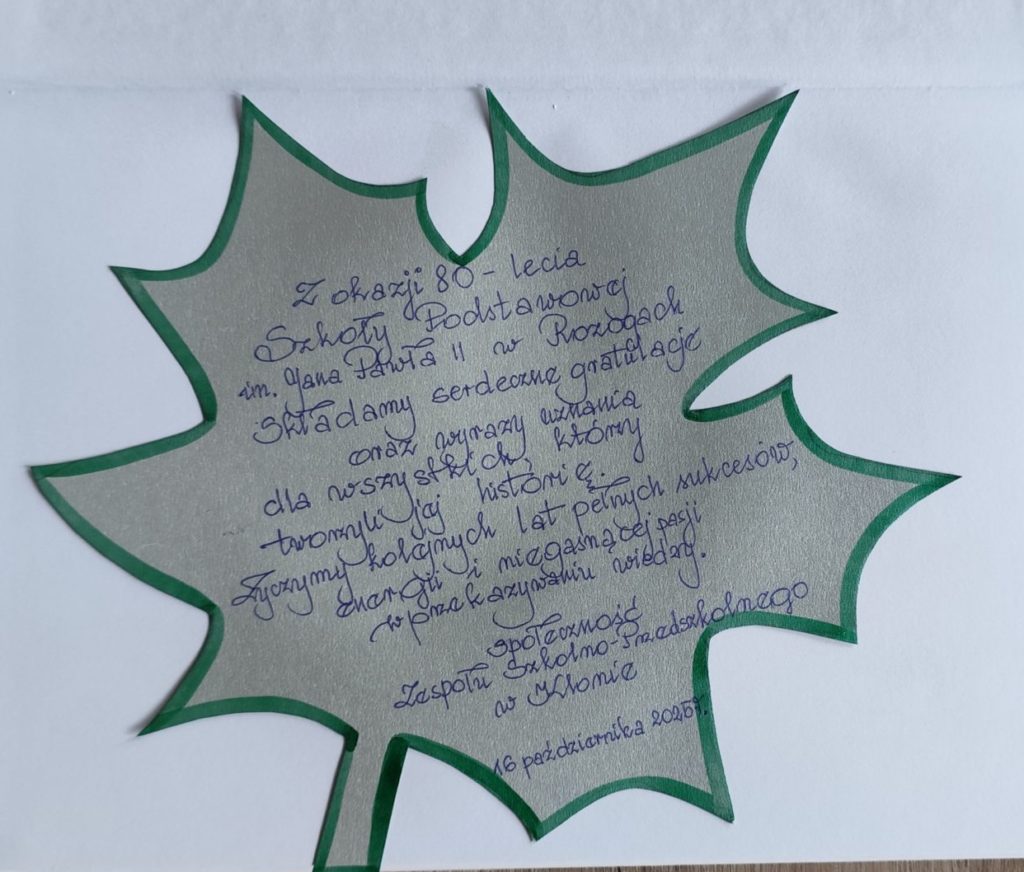 Z okazji 80-lecia
Szkoły Podstawowej
im. Jana Pawła II w Rozogach
składamy serdeczne gratulacje
oraz wyrazy uznania
dla wszystkich, którzy
tworzyli jej historię.
Życzymy kolejnych lat pełnych sukcesów,
energii i niegasnącej pasji
w przekazywaniu wiedzy.
społeczność
Zespołu Szkolno-Przedszkolnego
w Klonie
16 października 2025r.